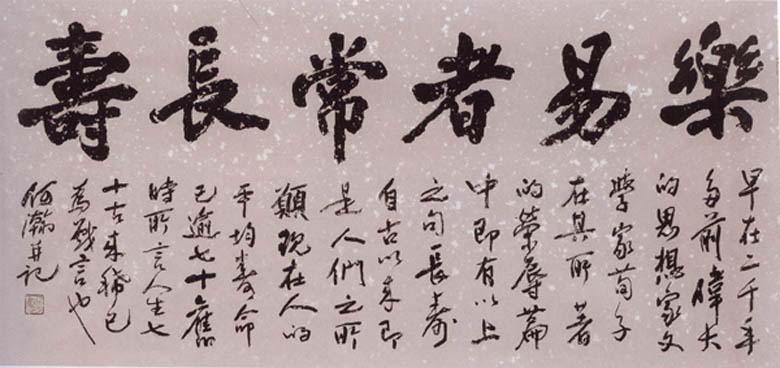 樂易者常長壽
早在二千年
多前偉大
的思想家文
學家荀子
在其所著
的榮辱篇
中即有以上
之句長壽
自古以來即
是人們之所
願現在人的
平均壽命
已逾七十舊
時所言人生七
十古來稀已
為戲言也
何瀚并記